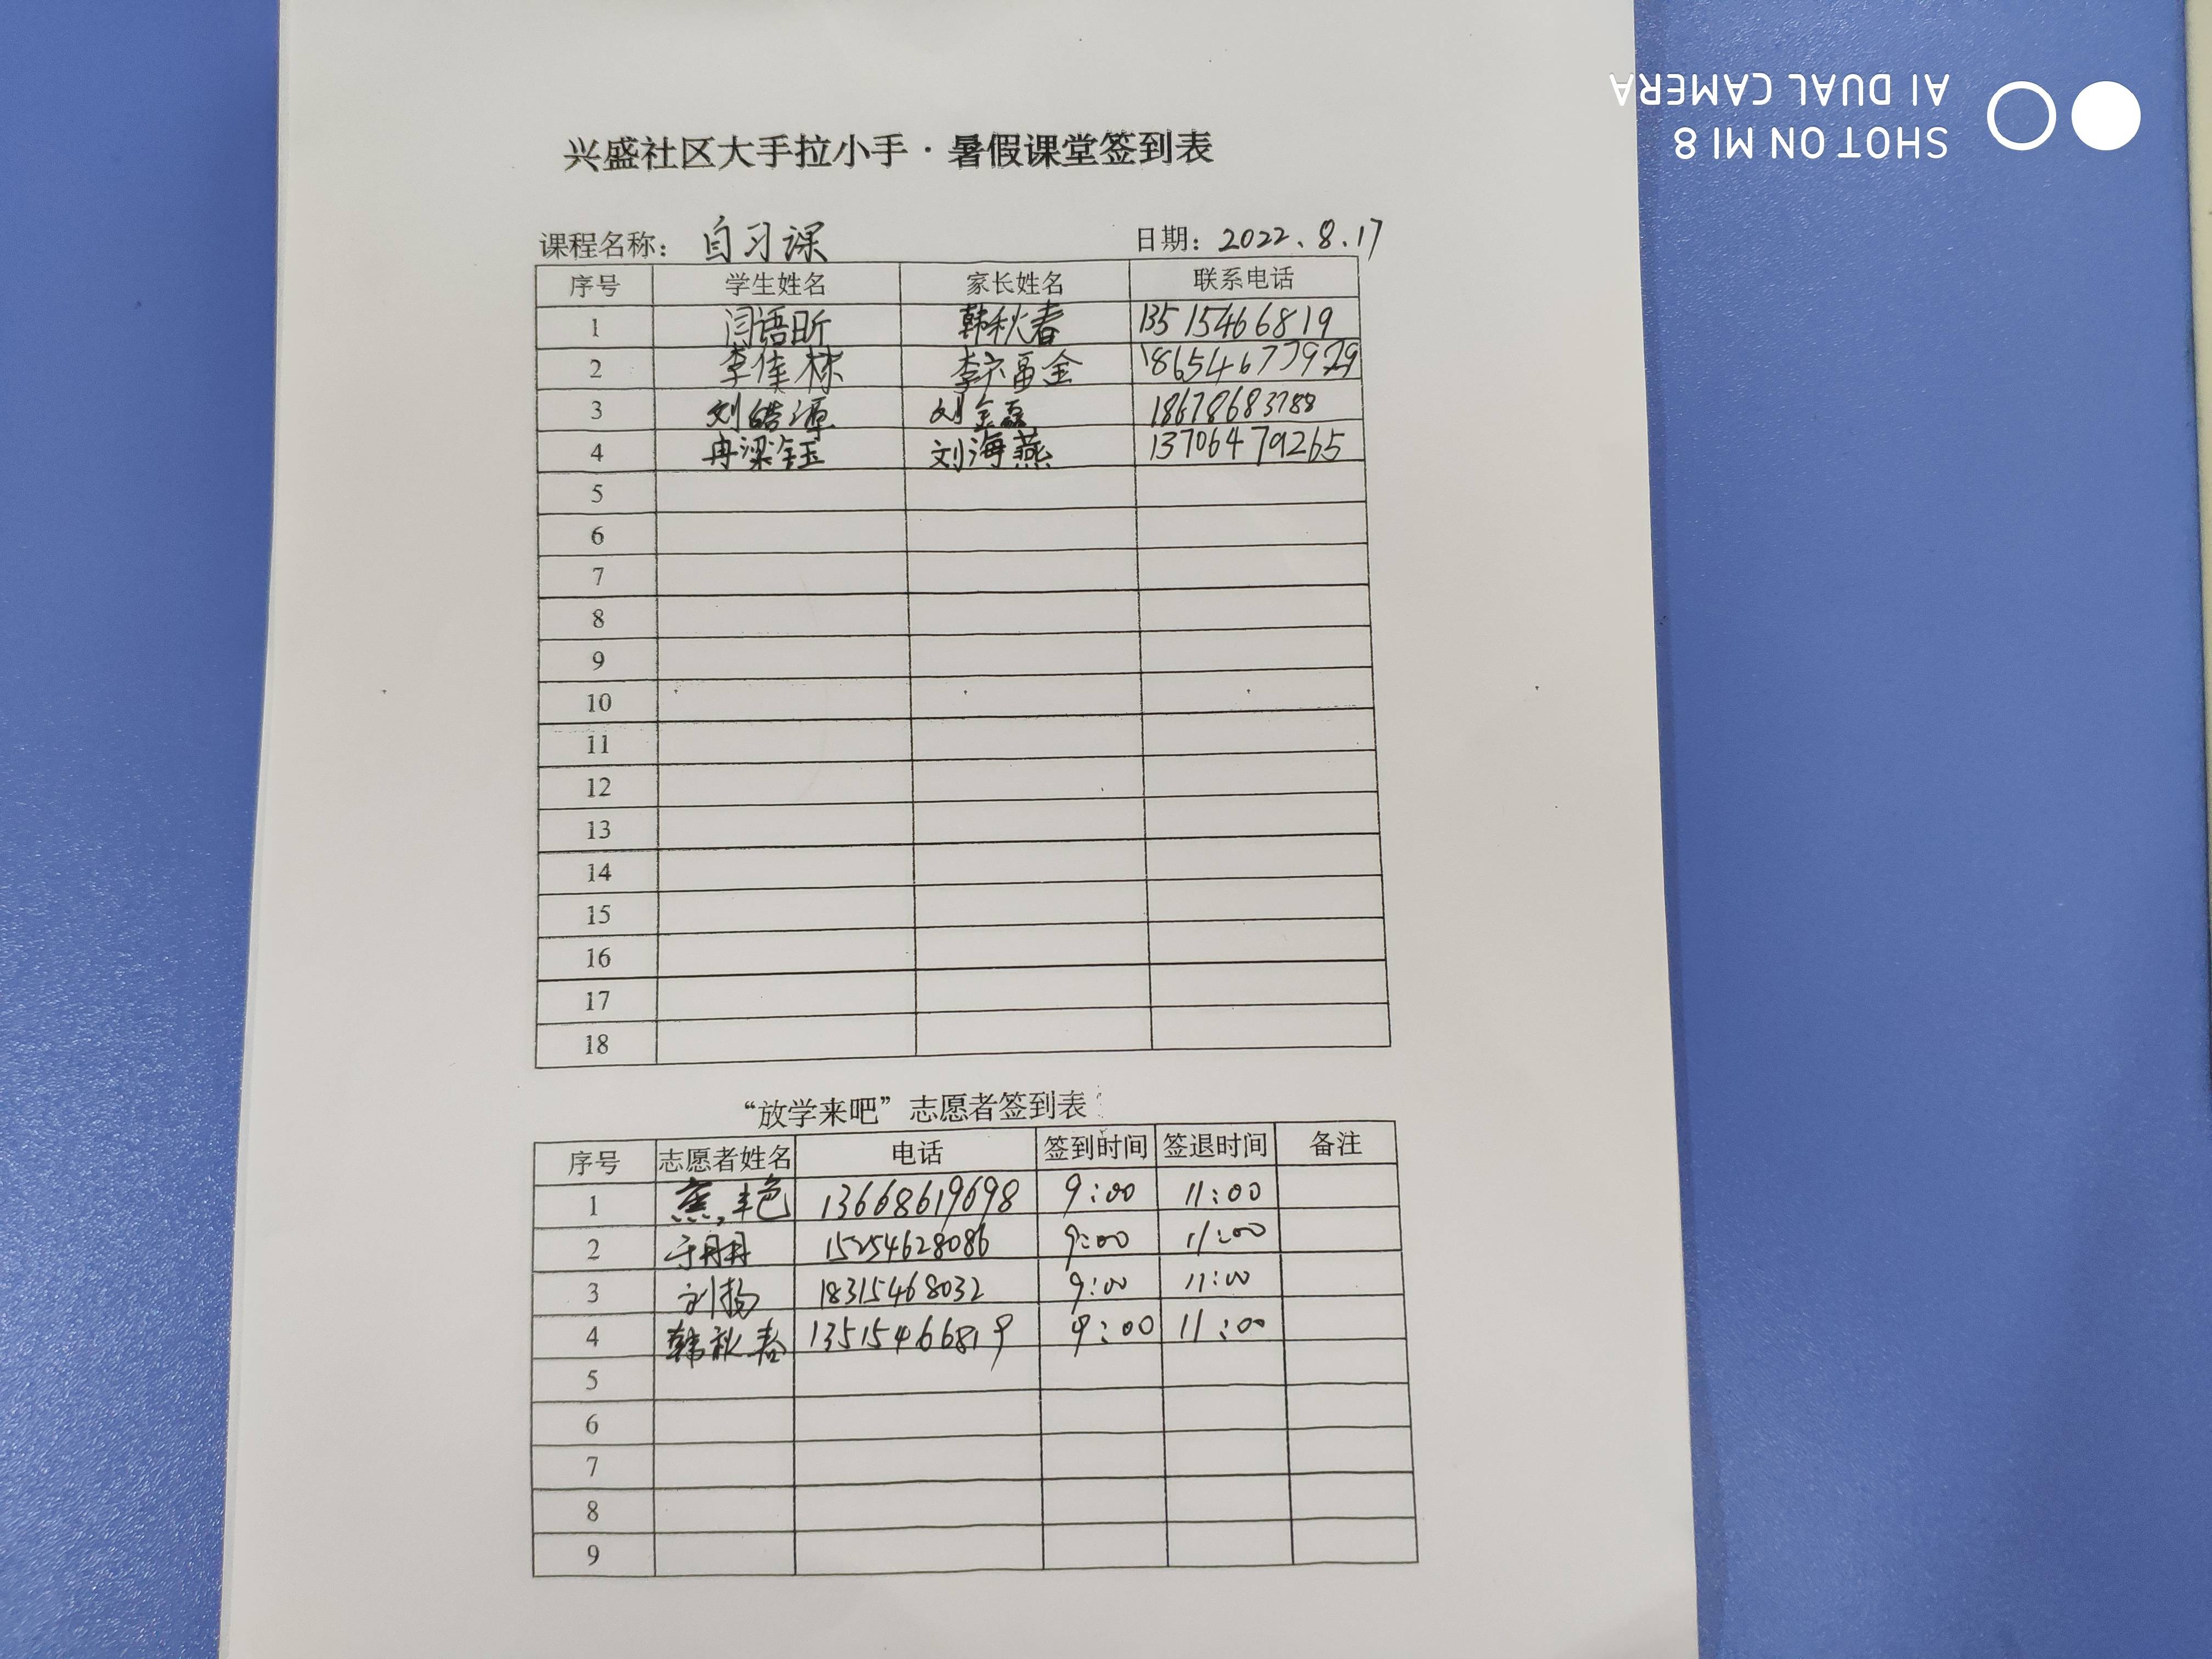 兴盛社区大手拉小手·暑假课堂签到表
课程名称： 自习课 日期：2022.8.17
序号 学生姓名 家长姓名 联系电话
1 闫语昕 韩秋春 13515466819
2 李佳林 李福金
3 刘皓源 刘金磊 18678683788
4 冉梁钰 刘海燕 13706479265
5
6
7
8
9
10
11
12
13
14
15
16
17
18
“放学来吧”志愿者签到表
序号 志愿者姓名 电话 签到时间 签退时间 备注
1 焦艳 13668619698 9:00 11:00
2 于丹丹 15254628086 9:00 11:00
3 刘扬 18315468032 9:00 11:00
4 韩秋春 13515466819 9:00 11:00
5
6
7
8
9
SHOT ON MI 8
AI DUAL CAMERA